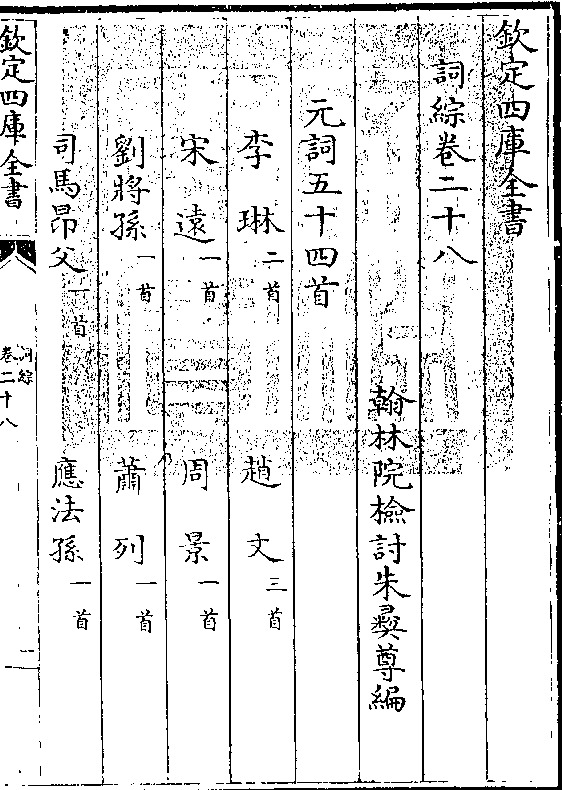 欽定四庫全書
詞綜卷二十八
翰林院檢討朱彞尊編
元詞五十四首
李琳二首 趙文三首
宋遠一首 周景一首
劉將孫一首 蕭列一首
司馬昂父一首 應法孫一首
欽定四庫全書 詞綜 卷二十八 一